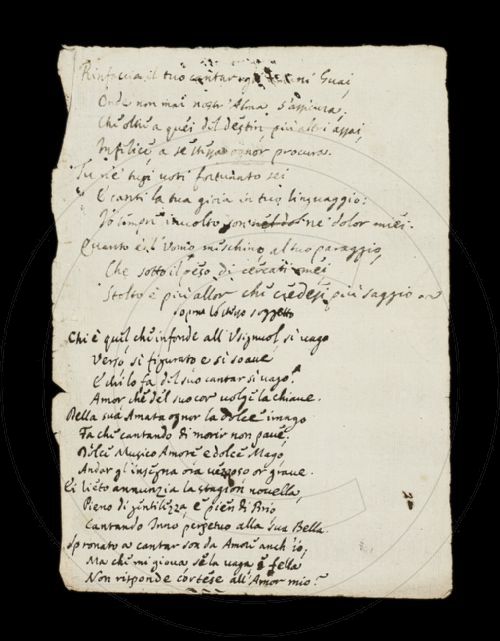 Rinfaccia il tuo cantar ni Guai,
Onde non mai nostr'Alma s'assicura,
Chi oltr'a quei del destin più altri assai,
Infelice, a se stessa ognor procura.
Tu ne tuoi voti fortunato sei
E canti la tua gioia in tuo linguaggio:
Io sempre involto son ne dolor miei.
Quanto è l'Uomo meschino al tuo paraggio,
Che sotto il peso di cercati omei
Stolto è più allor che credesi più saggio
sopra lo stesso soggetto
Chi è quel che infonde all'Usignuol sì vago
Verso sì figurato e sì soave
E chi lo fa del suo cantar sì vago?
Amor che del suo cor volge la chiave.
Della sua Amata ognor la dolce imago
Fa che cantando di morir non pave;
Dolce Musico Amore e dolce Mago,
Andar gl'insegna ora vezzoso or grave.
Ei lieto annunzia la stagion novella,
Pieno di gentilezza e pien di Brio
Cantando Inno perpetuo alla sua Bella.
Spronato a cantar son da Amore anch'io;
Ma che mi giova se la vaga è fella
Non risponde cortese all'Amor mio?